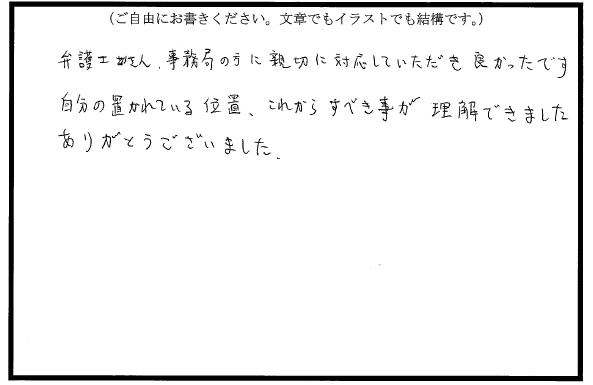 (ご自由にお書きください。文章でもイラストでも結構です。)
弁護士さん、事務局の方に親切に対応していただき良かったです
自分の置かれている位置、これからすべき事が理解できました
ありがとうございました.